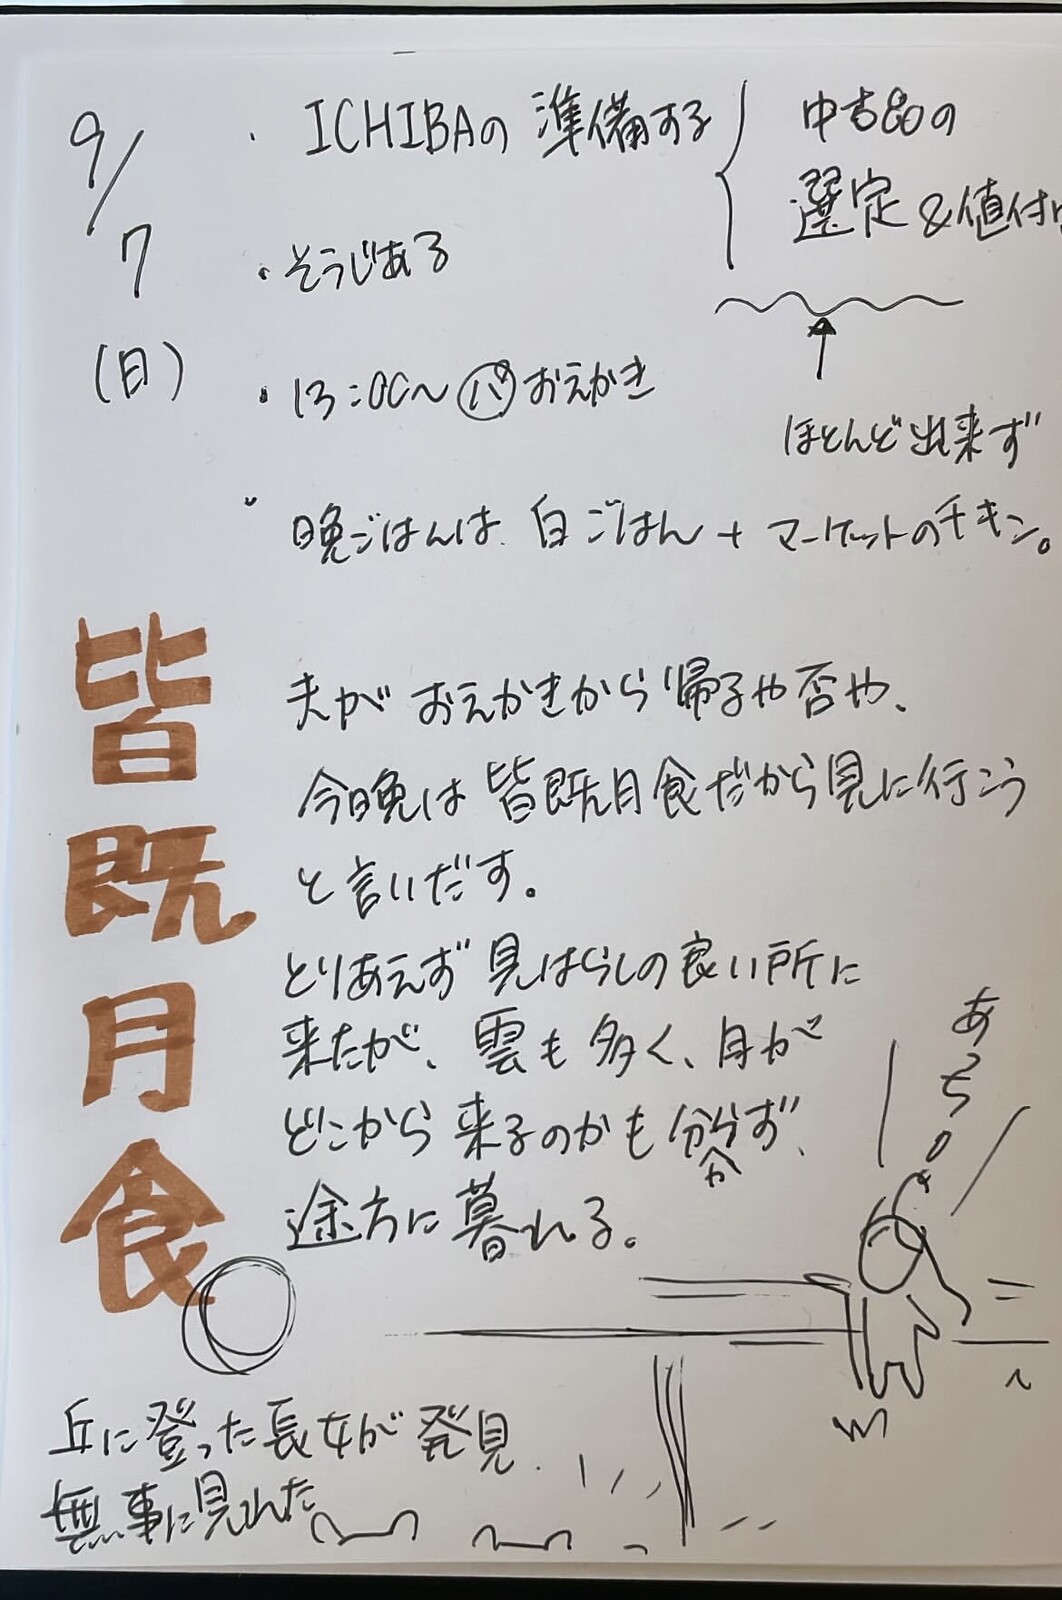 9/7
(日)
・ICHIBAの準備する
中古品の
選定&値付け
・そうじある
ほとんど出来ず
・13:00〜 パ おえかき
・晩ごはんは、白ごはん+マーケットのチキン。
皆既月食
夫がおえかきから帰るや否や、
今晩は皆既月食だから見に行こう
と言いだす。
とりあえず見はらしの良い所に
来たが、雲も多く、月が
どこから来るのかも分からず、
途方に暮れる。
あっち!
丘に登った長女が発見
無事に見れた